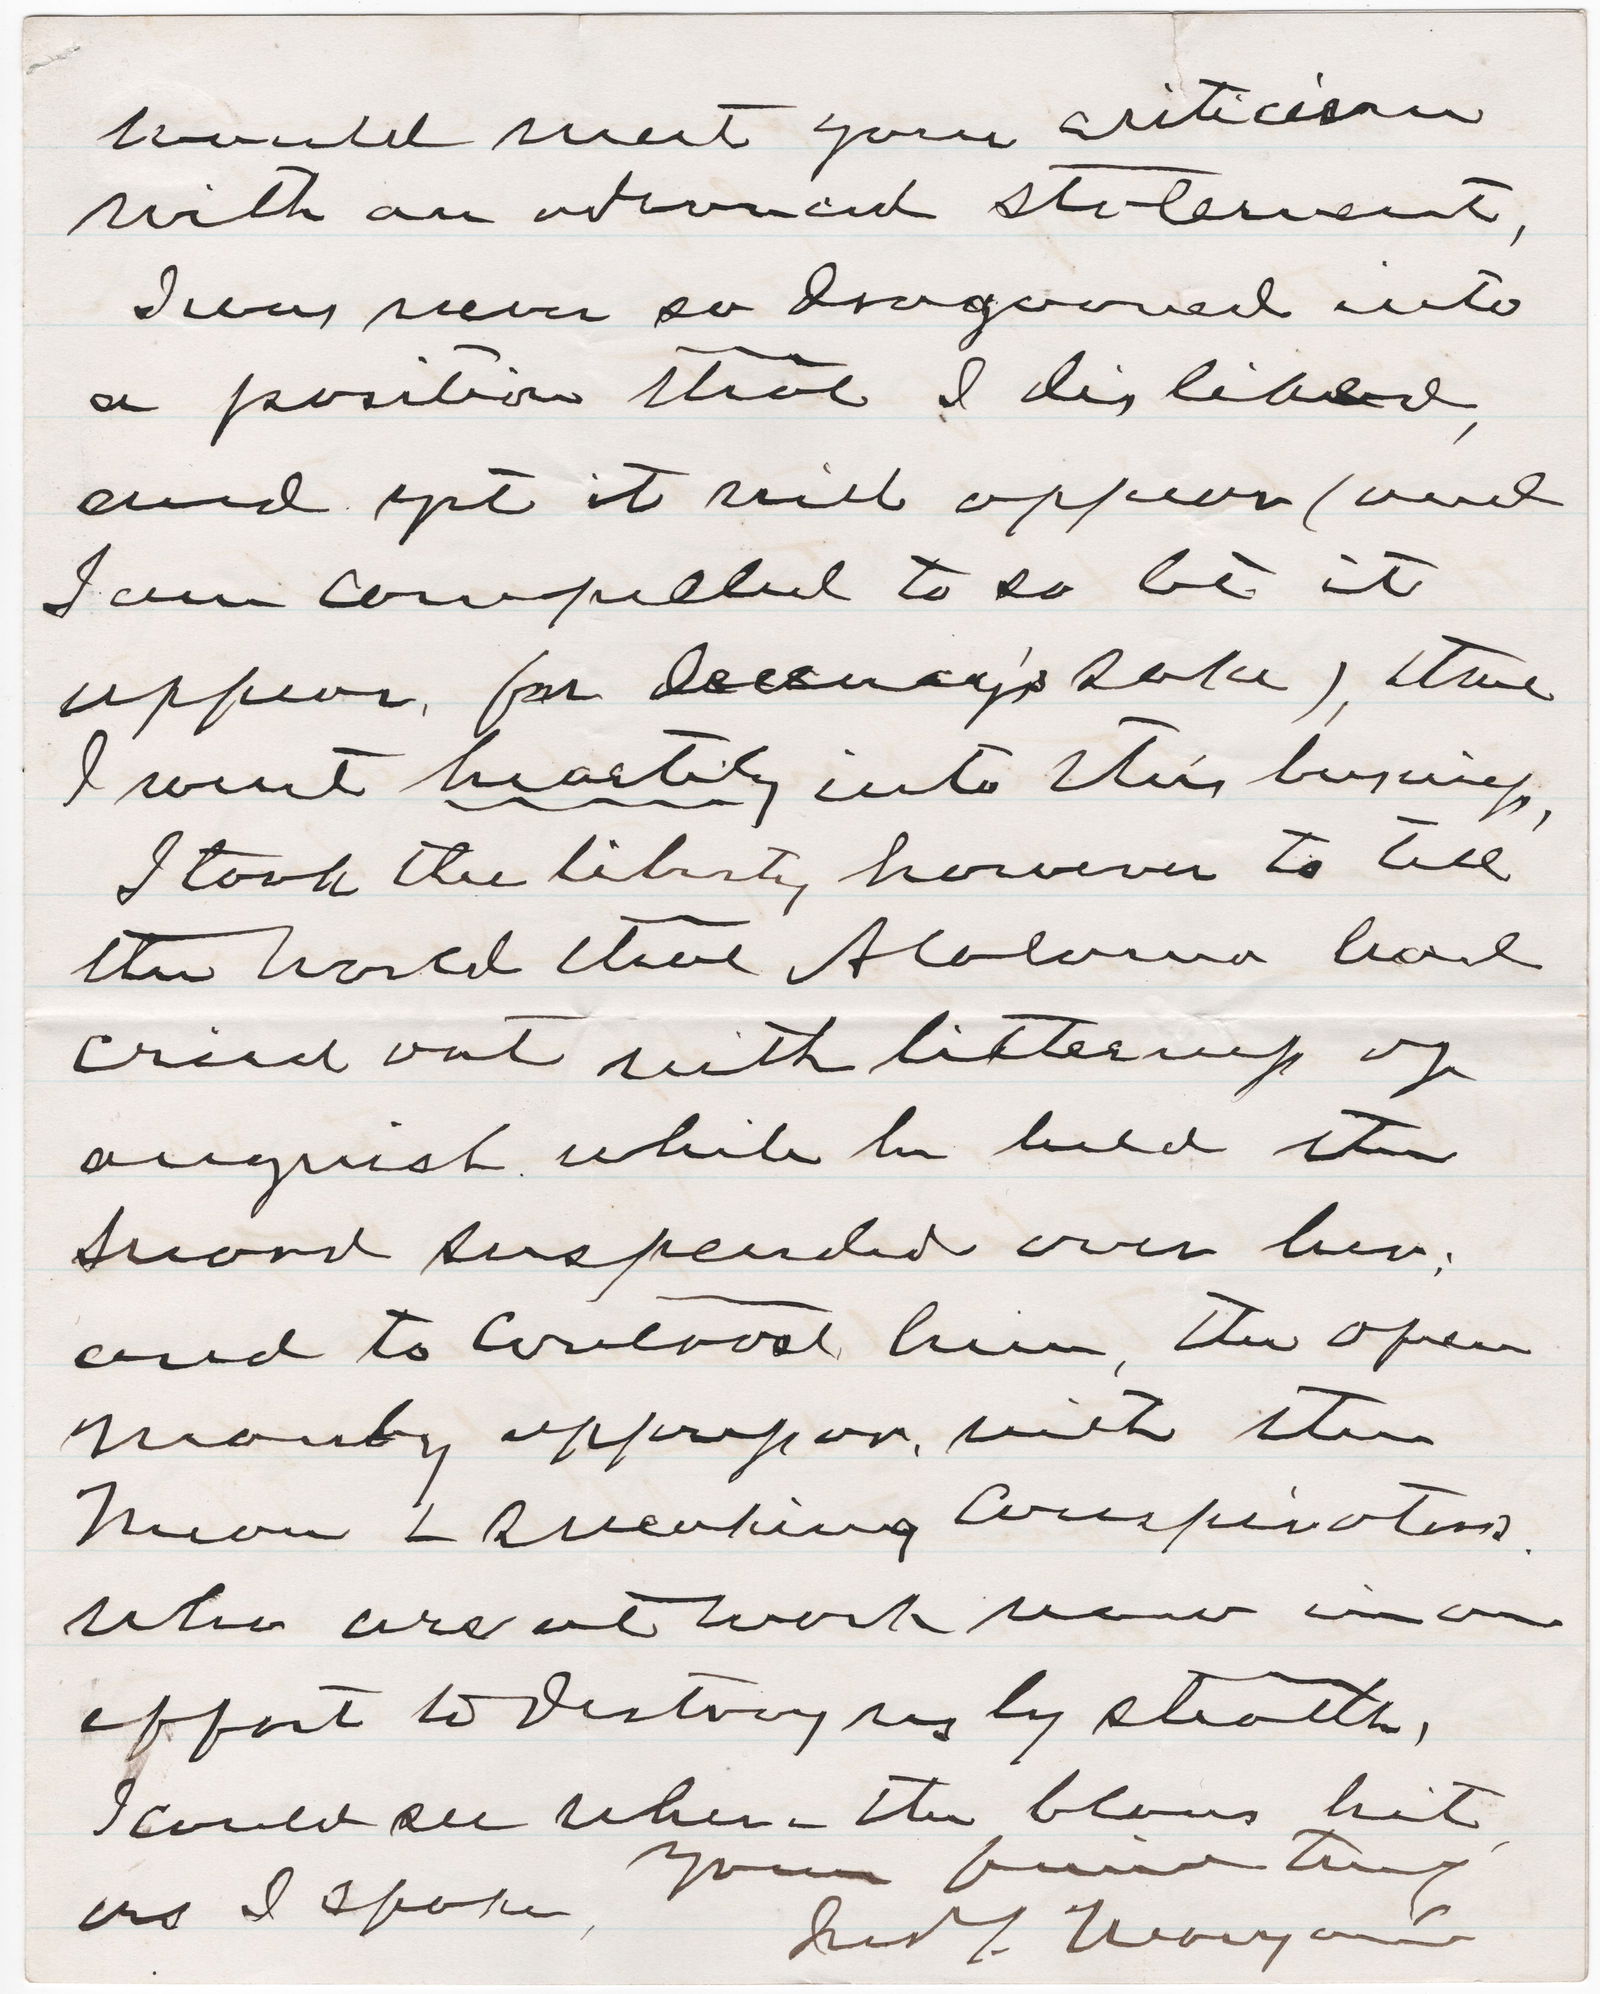 would meet your criticism
with an advanced statement,
I was never so dragooned into
a position that I disliked,
and yet it will appear (and
I am compelled to so let it
appear, for decency's sake), that
I went heartily into this business,
I took the liberty however to tell
the world that Alabama had
cried out with bitterness of
anguish while he held the
sword suspended over her;
and to contrast him, the open
manly oppressor, with the
mean & sneaking conspirators.
who are at work now in an
effort to destroy us by stealth,
I could see where the blows hit,
as I spoke,
Your friend truly
Jno T. Morgan